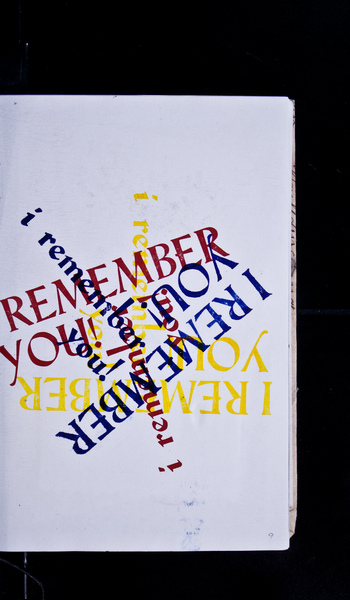 i remember
you!
i remember
you!
REMEMBER
YOU!
I REMEMBER
YOU!
I REMEMBER
YOU!
i remember
you!